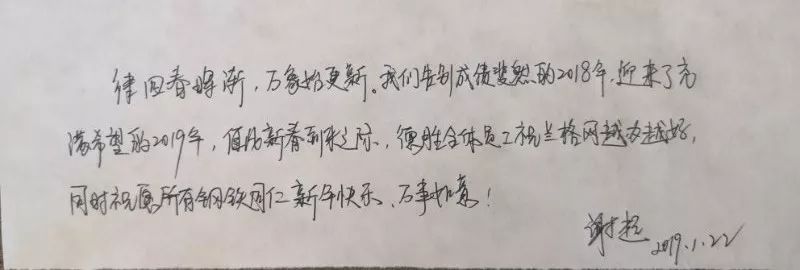 律回春晖渐，万象始更新。我们告别成绩斐然的2018年，迎来了充
满希望的2019年，值此新春到来之际，德胜全体员工祝兰格网越办越好，
同时祝愿所有钢铁同仁新年快乐、万事如意！
谢超 2019.1.22